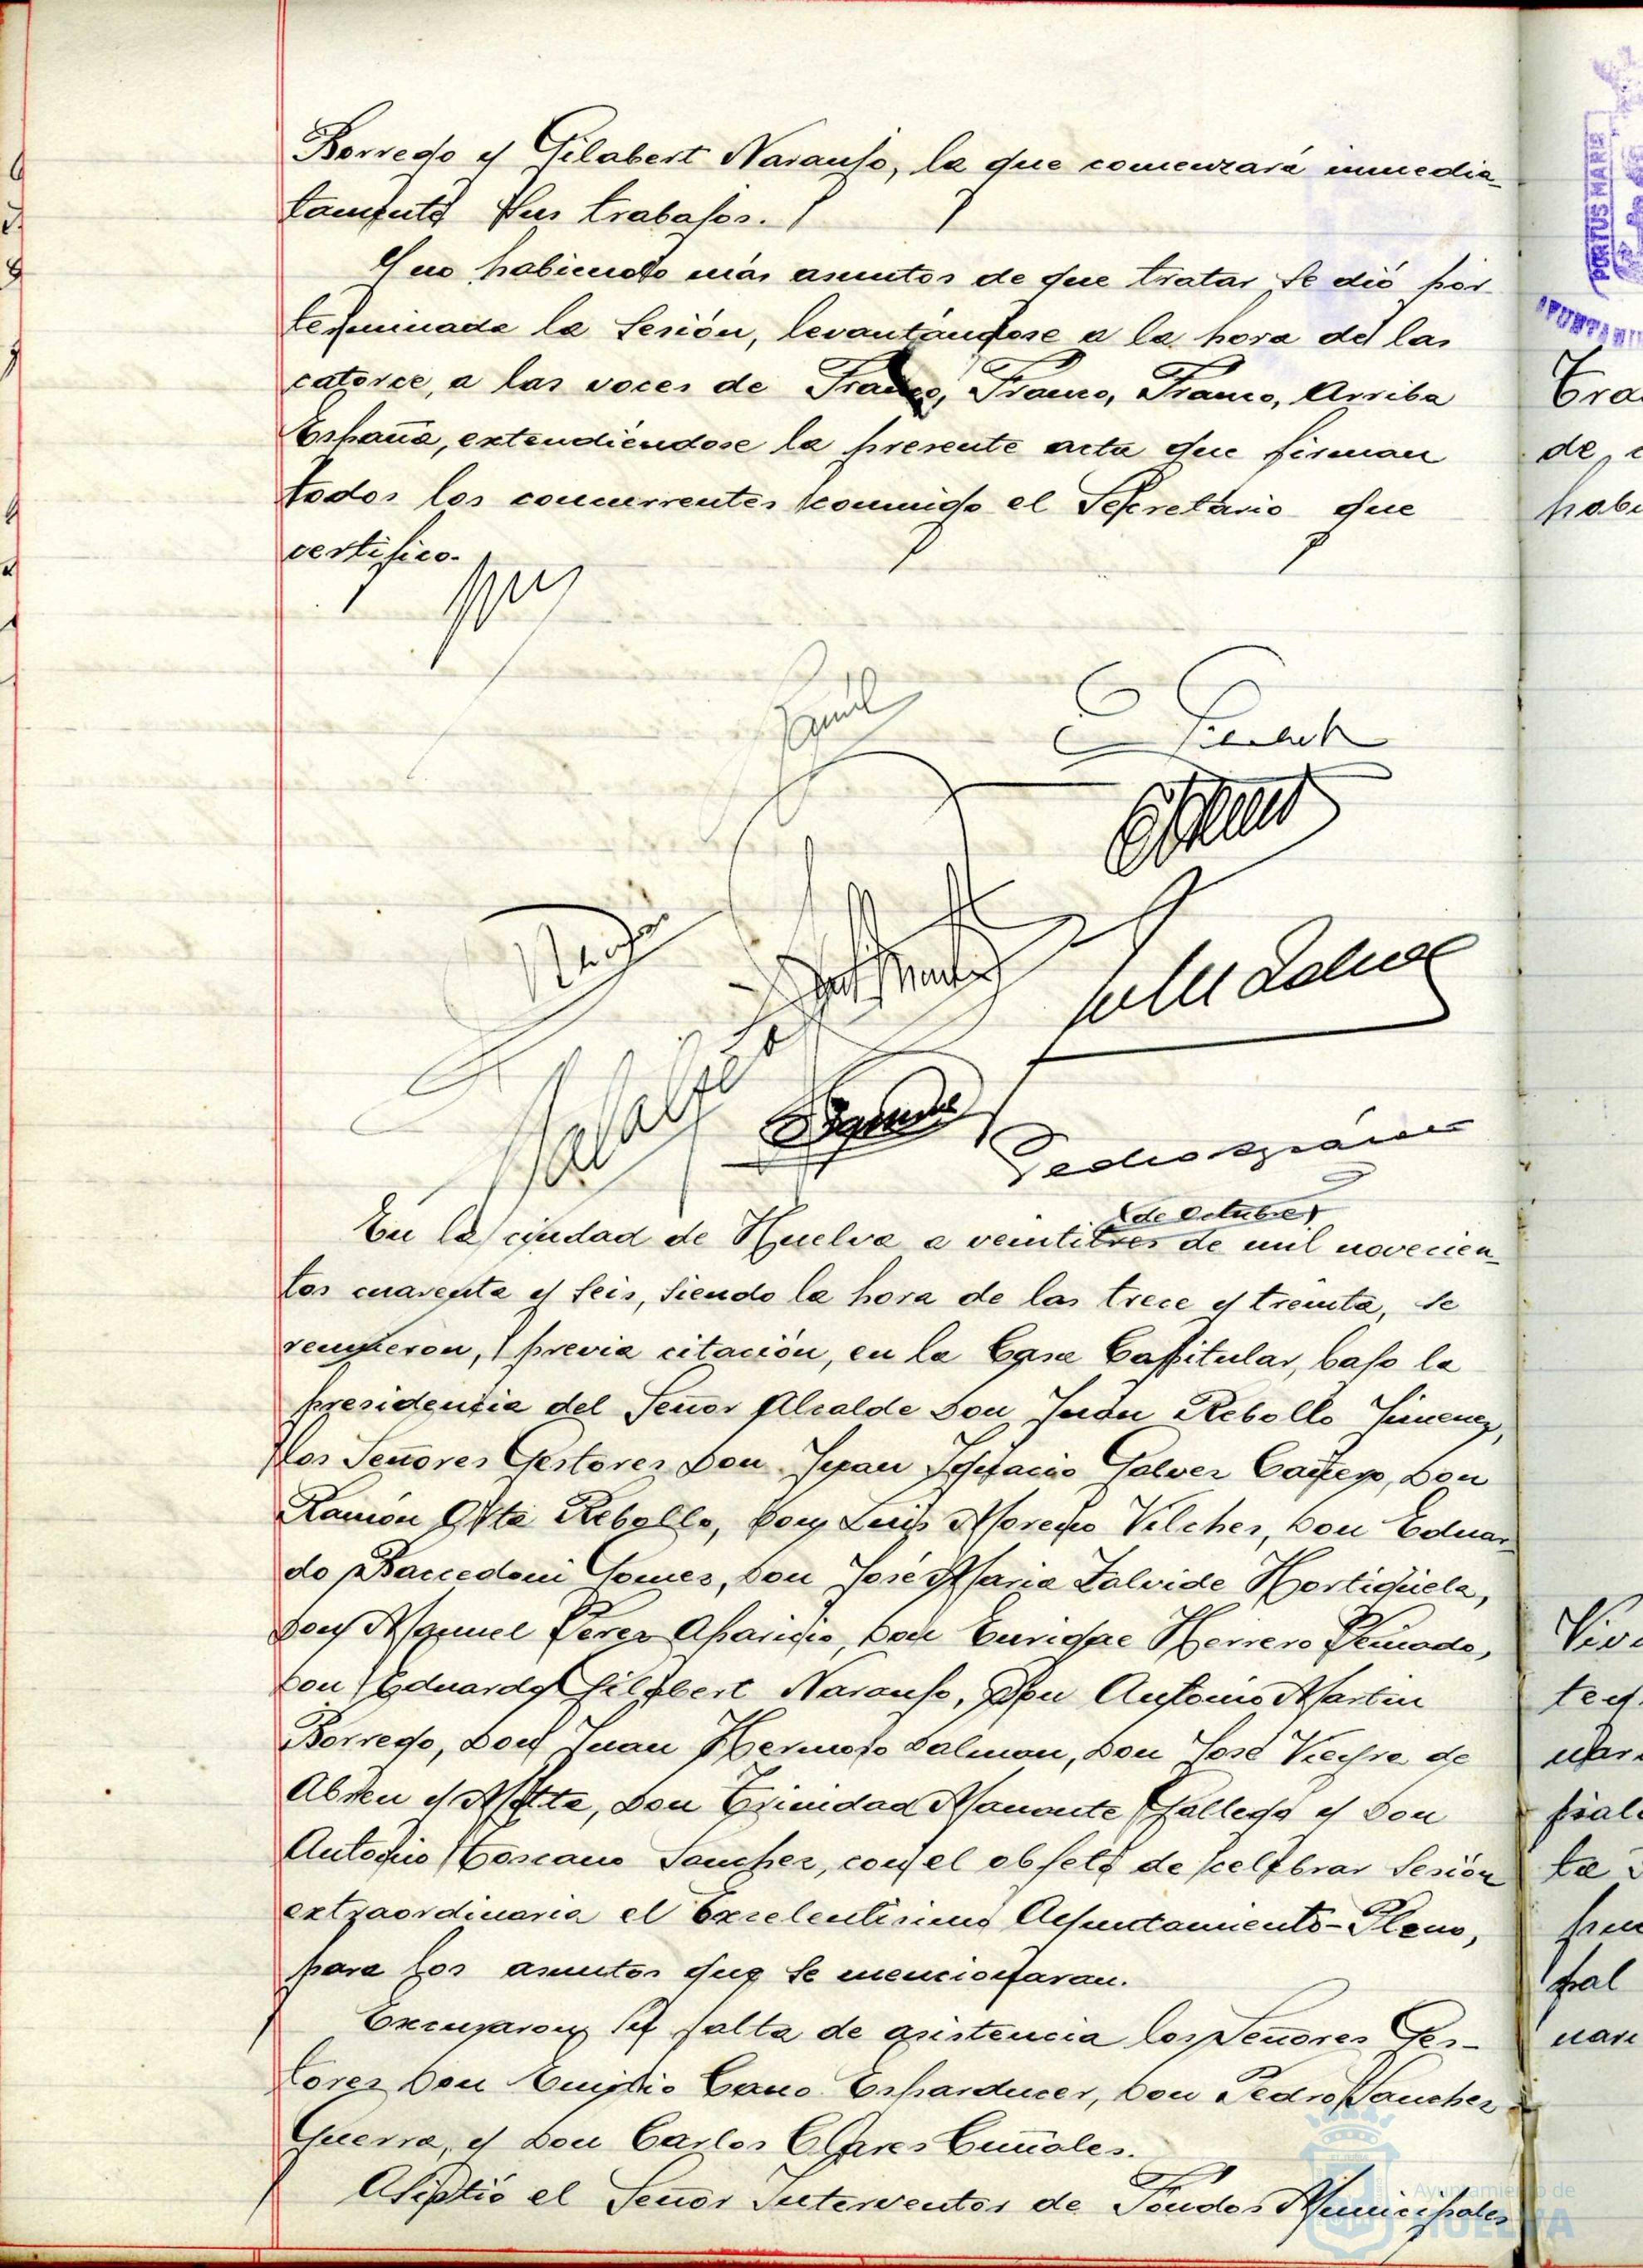 Borrego y Gilabert Naranjo, la que comenzará inmedia-
tamente sus trabajos.
Y no habiendo más asuntos de que tratar se dió por
terminada la Sesión, levantándose a la hora de las
catorce, a las voces de Franco, Franco, Franco, Arriba
España, extendiéndose la presente acta que firman
todos los concurrentes conmigo el Secretario que
certifico.
En la ciudad de Huelva a veintitres de mil novecien-
(de Octubre)
tos cuarenta y seis, siendo la hora de las trece y treinta, se
reunieron, previa citación, en la Casa Capitular, bajo la
presidencia del Señor Alcalde Don Juan Rebollo Jimenez,
los Señores Gestores Don Juan Ignacio Galvez Cañero, Don
Ramón Orta Rebollo, Don Luis Moreno Vilches, Don Eduar-
do Gomez, Don José Maria Zalvide Hortigüela,
Don Manuel Perez Aparicio, Don Enrique Herrero Peinado,
Don Eduardo Gilabert Naranjo, Don Antonio Martin
Borrego, Don Juan Hermoso Dalmau, Don José Vieyra de
Abreu y Motta, Don Trinidad Manante Gallego y Don
Antonio Toscano Sanchez, con el objeto de celebrar Sesión
extraordinaria el Excelentísimo Ayuntamiento-Pleno,
para los asuntos que se mencionaran.
Excusaron su falta de asistencia los Señores Ges-
tores Don Emilio Cano Don Pedro Sanchez
Guerra, y Don Carlos
Asistió el Señor Interventor de Fondos Municipales
PORTUS MARIS
Ayuntamiento de
HUELVA